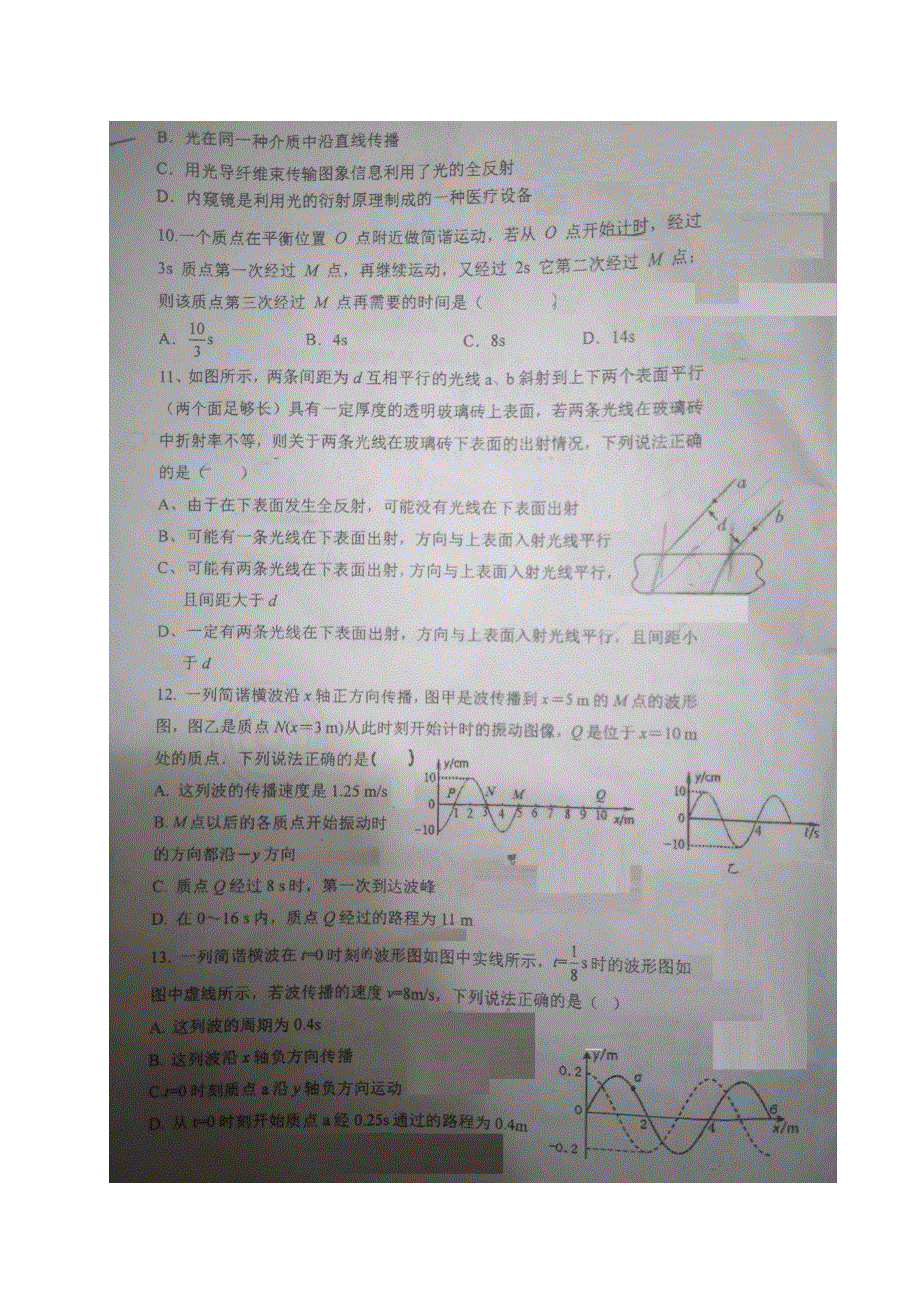 B．光在同一种介质中沿直线传播
C．用光导纤维束传输图象信息利用了光的全反射
D．内窥镜是利用光的衍射原理制成的一种医疗设备
10.一个质点在平衡位置 O 点附近做简谐运动，若从 O 点开始计时，经过
3s 质点第一次经过 M 点，再继续运动，又经过 2s 它第二次经过 M 点；
则该质点第三次经过 M 点再需要的时间是（ ）
A．10/3 s B．4s C．8s D．14s
11、如图所示，两条间距为 d 互相平行的光线 a、b 斜射到上下两个表面平行
（两个面足够长）具有一定厚度的透明玻璃砖上表面，若两条光线在玻璃砖
中折射率不等，则关于两条光线在玻璃砖下表面的出射情况，下列说法正确
的是（ ）
A、由于在下表面发生全反射，可能没有光线在下表面出射
B、可能有一条光线在下表面出射，方向与上表面入射光线平行
C、可能有两条光线在下表面出射，方向与上表面入射光线平行，
且间距大于 d
D、一定有两条光线在下表面出射，方向与上表面入射光线平行，且间距小
于 d
a
d
b
12. 一列简谐横波沿 x 轴正方向传播，图甲是波传播到 x＝5 m 的 M 点的波形
图，图乙是质点 N(x＝3 m)从此时刻开始计时的振动图像，Q 是位于 x＝10 m
处的质点．下列说法正确的是( )
A. 这列波的传播速度是 1.25 m/s
B. M 点以后的各质点开始振动时
的方向都沿－y 方向
C. 质点 Q 经过 8 s 时，第一次到达波峰
D. 在 0～16 s 内，质点 Q 经过的路程为 1.1 m
y/cm
10
P N M Q
0 1 2 3 4 5 6 7 8 9 10 x/m
-10
甲
y/cm
10
0 4 t/s
-10
乙
13. 一列简谐横波在 t=0 时刻的波形图如图中实线所示，t=1/8 s 时的波形图如
图中虚线所示，若波传播的速度 v=8m/s，下列说法正确的是（ ）
A. 这列波的周期为 0.4s
B. 这列波沿 x 轴负方向传播
C.t=0 时刻质点 a 沿 y 轴负方向运动
D. 从 t=0 时刻开始质点 a 经 0.25s 通过的路程为 0.4m
y/m
0.2 a
0 2 4 6
x/m
-0.2